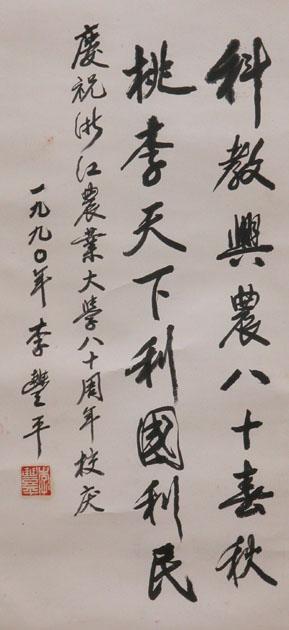 科教興農八十春秋
桃李天下利國利民
慶祝浙江農業大學八十周年校庆
一九九〇年李豐平